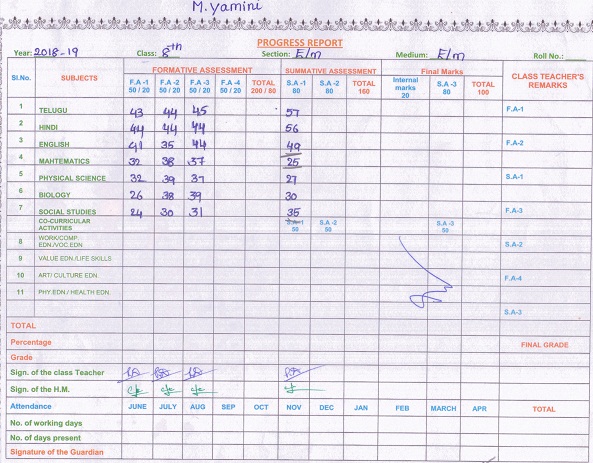 M.Yamini
PROGRESS REPORT
Year: 2018-19 Class: 8th Section: E/m Medium: E/m Roll No.:
Sl.No. SUBJECTS FORMATIVE ASSESSMENT SUMMATIVE ASSESSMENT Final Marks CLASS TEACHER'S REMARKS
F.A -1 50 / 20 F.A -2 50 / 20 F.A -3 50 / 20 F.A -4 50 / 20 TOTAL 200 / 80 S.A -1 80 S.A -2 80 TOTAL 160 Internal marks 20 S.A -3 80 TOTAL 100
1 TELUGU 43 44 45 57 F.A-1
2 HINDI 44 44 44 56
3 ENGLISH 41 35 44 49 F.A-2
4 MAHTEMATICS 32 38 37 25
5 PHYSICAL SCIENCE 32 39 37 27 S.A-1
6 BIOLOGY 26 38 39 30
7 SOCIAL STUDIES 24 30 31 35 F.A-3
CO-CURRICULAR ACTIVITIES S.A-1 50 S.A -2 50 S.A -3 50
8 WORK/COMP EDN./VOC.EDN S.A-2
9 VALUE EDN./LIFE SKILLS
10 ART/ CULTURE EDN F.A-4
11 PHY.EDN / HEALTH EDN
S.A-3
TOTAL
Percentage FINAL GRADE
Grade
Sign. of the class Teacher
Sign. of the H.M.
Attendance JUNE JULY AUG SEP OCT NOV DEC JAN FEB MARCH APR TOTAL
No. of working days
No. of days present
Signature of the Guardian